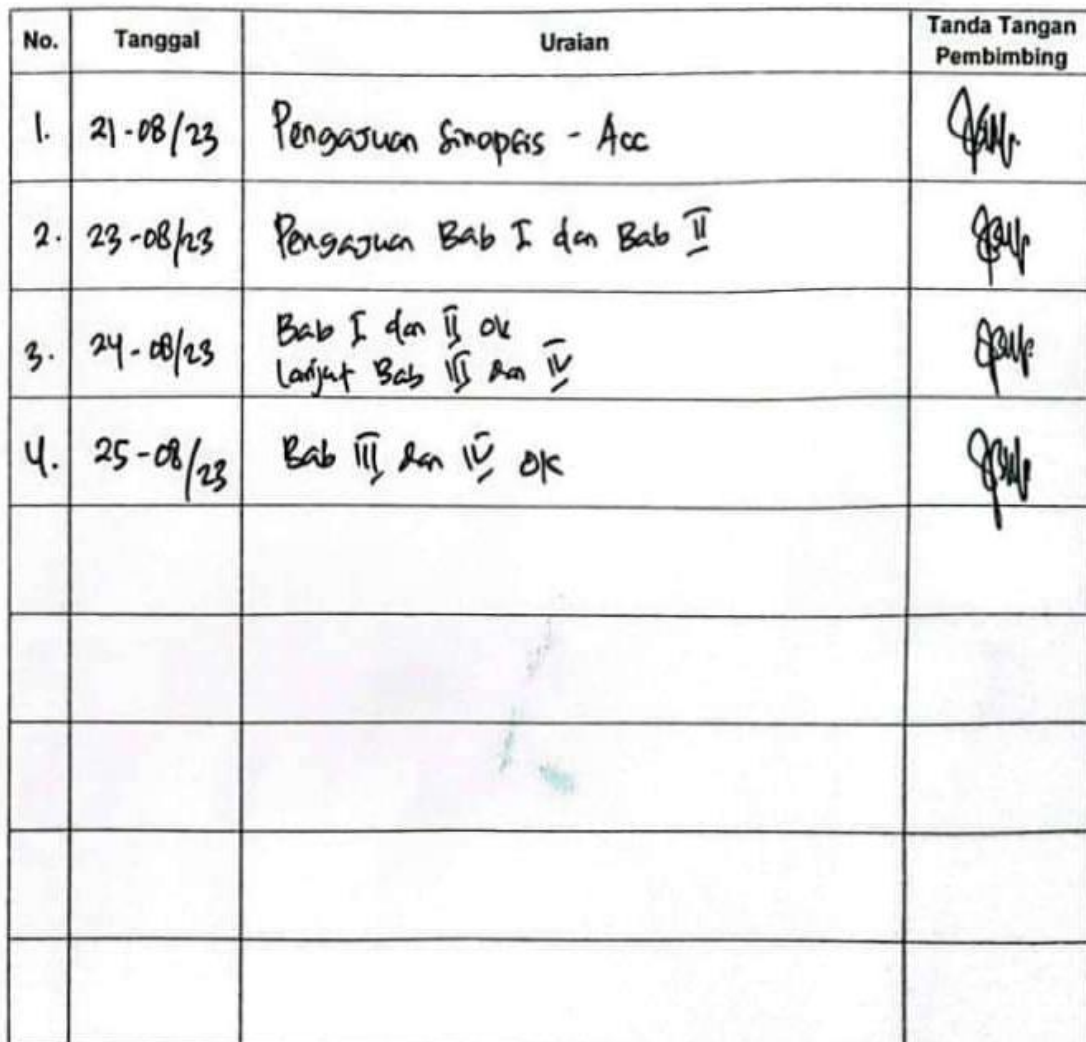 No. Tanggal Uraian Tanda Tangan
Pembimbing
1. 21-08/23 Pengajuan Sinopsis - Acc
2. 23-08/23 Pengajuan Bab I dan Bab II
3. 24-08/23 Bab I dan II ok
lanjut Bab III dan IV
4. 25-08/23 Bab III dan IV ok